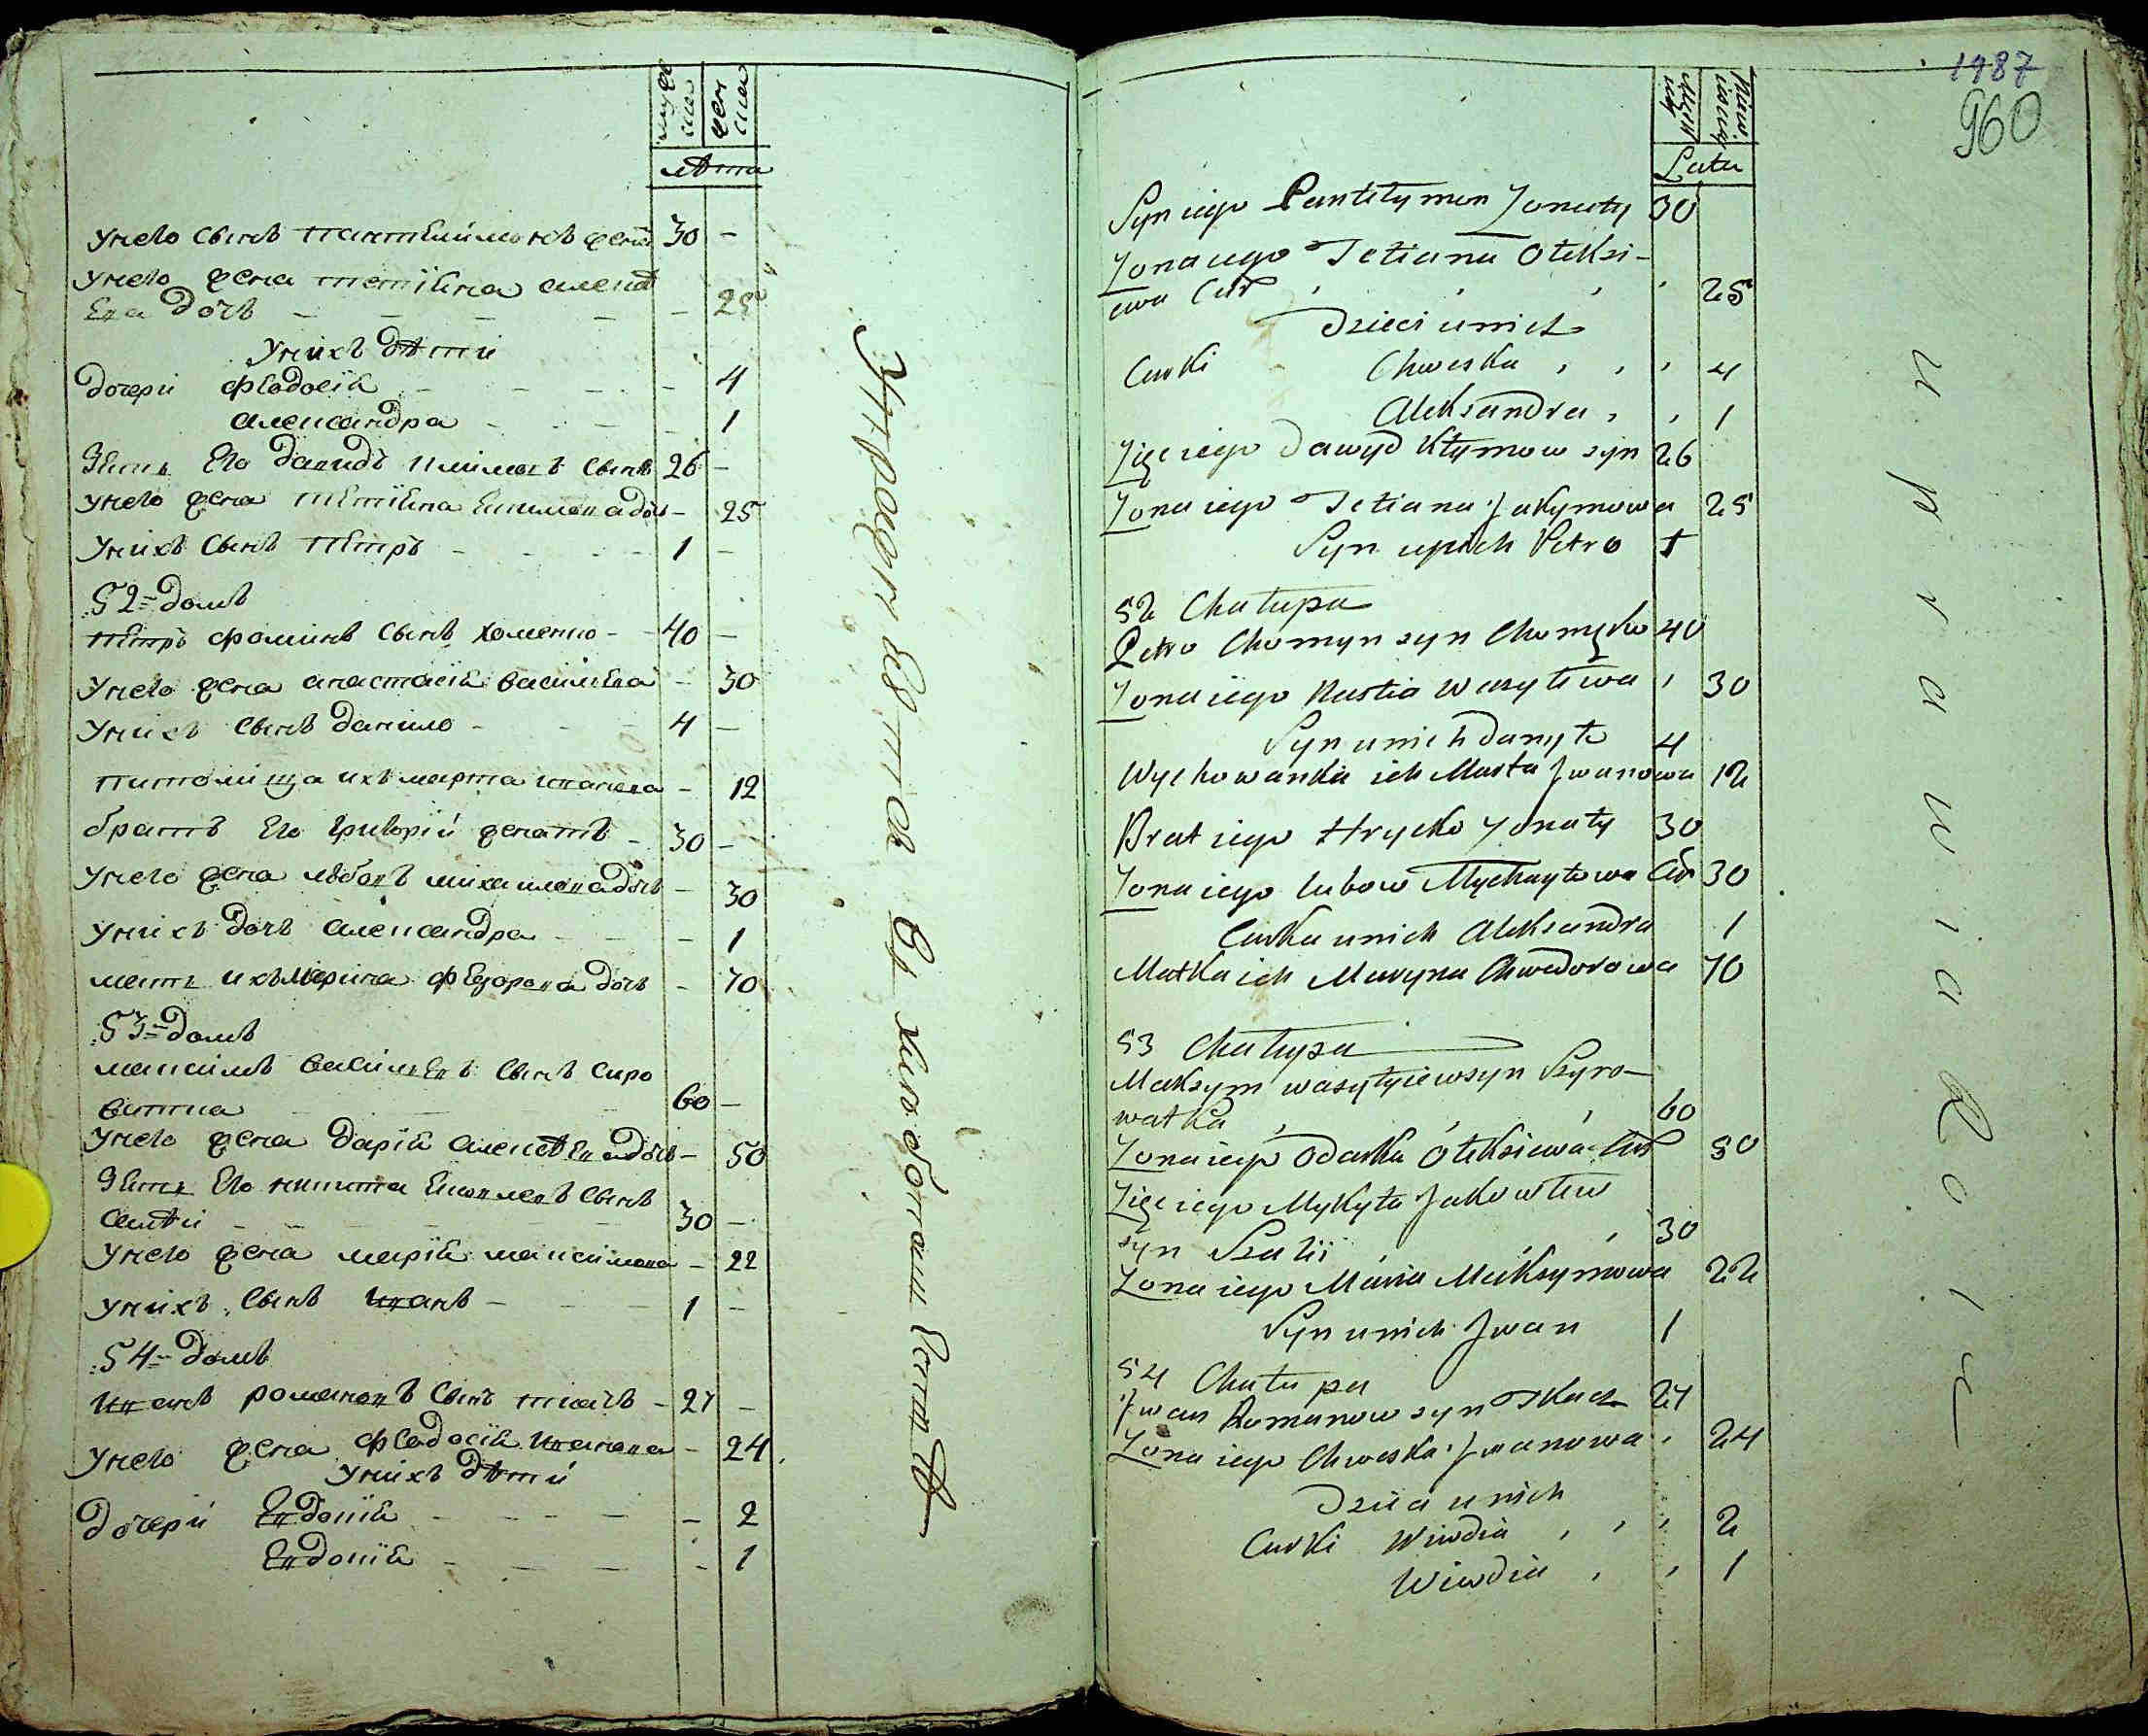 мужеска
женска
лѣта
У него сынъ пантелимонъ жена 30 -
У него жена тетіяна алексѣ
ева дочь - - - - - 25
У нихъ дѣти
дочери феодосія - - - 4
александра - - - 1
Зять его давидъ климовъ сынъ 26 -
У него жена тетіяна екимова дочь - 25
У нихъ сынъ петръ - - - 1 -
52 = домъ
петръ фоминъ сынъ хоменко - 40 -
У него жена анастасія василева - 30
У нихъ сынъ данило - - 4 -
питомица ихъ марта иванова - 12
братъ его григорій женатъ - 30 -
У него жена любовъ михаилова дочь - 30
У нихъ дочь александра - - - 1
мать ихъ марина федорова дочь - 70
53 = домъ
максимъ васильевъ сынъ сиро
ватка - - - 60 -
У него жена дарія алексѣева дочь - 50
Зять его никита яковлевъ сынъ
салѣи - - - - 30 -
У него жена марія максимова - 22
У нихъ сынъ иванъ - - - 1 -
54 = домъ
иванъ романовъ сынъ ткачъ - 27 -
У него жена феодосія иванова - 24
У нихъ дѣти
дочери Евдокія - - - - 2
Евдокія - - - - 1
въ хлѣбопашествѣ
1187
960
Latu
Syn iego Pantełymon Żonaty 30
Żona iego Tetiana Ołeksi-
iewa Cur , , , , 25
Dzieci u nich
Curki Chweska , , , 4
Aleksandra , , 1
Zięc iego Dawyd Kłymow syn 26
Żona iego Tetiana Jakymowa 25
Syn u nich Petro 1
52 Chałupa
Petro Chomyn syn Chomęko 40
Żona iego Nastia Wasylewa , 30
Syn u nich Danyło 4
Wychowanka ich Marta Jwanowa 12
Brat iego Hrycko Żonaty 30
Żona iego Lubow Mychayłowa Cur 30
Curka u nich Aleksandra 1
Matka ich Maryna Chwedorowa 70
53 Chałupa
Maksym Wasylyiew syn Syro-
watka , , 60
Żona iego Odarka Ołeksiewa Cur 50
Zięc iego Mykyta Jakowlew
syn Szalii , 30
Żona iego Maria Maksymowa 22
Syn u nich Jwan 1
54 Chałupa
Jwan Romanow syn Tkacz 27
Żona iego Chweska Jwanowa , 24
Dzieci u nich
Curki Wiwdia , , , 2
Wiwdia , , 1
uprawia Roliƶ